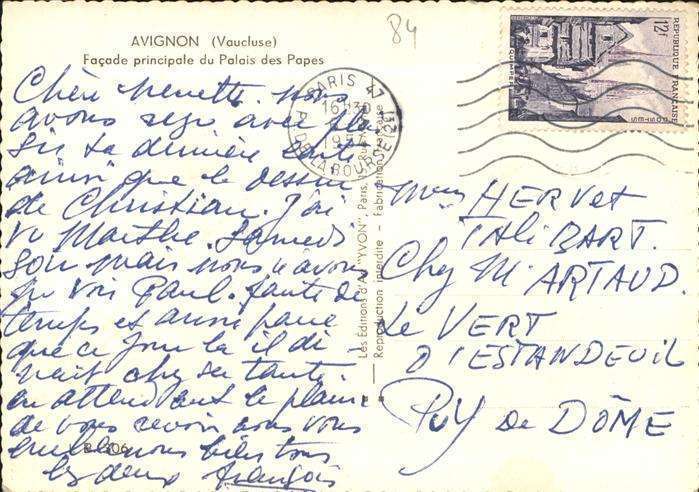 84
AVIGNON (Vaucluse)
Façade principale du Palais des Papes
RÉPUBLIQUE FRANÇAISE
12f
QUIMPER
PARIS 47
16H30
1954
R. DE LA BOURSE (2e)
Chère Nenette. nous
avons reçu avec
ta dernière carte
ainsi que le dessin
de Christian. J'ai
vu Marthe. Samedi
soir mais nous n'avons
pu voir Paul. faute de
temps et aussi parce
que ce jour là il di
nait chez sa tante.
en attendant le plaisir
de vous revoir nous vous
embrassons bien tous
les deux François
R 306
Les Éditions d'Art "YVON", Paris,
Reproduction Interdite - Fabrication
HERVET
TALIBART.
Chez M. ARTAUD.
Le VERT
D'ESTANDEUIL
PUY de DÔME